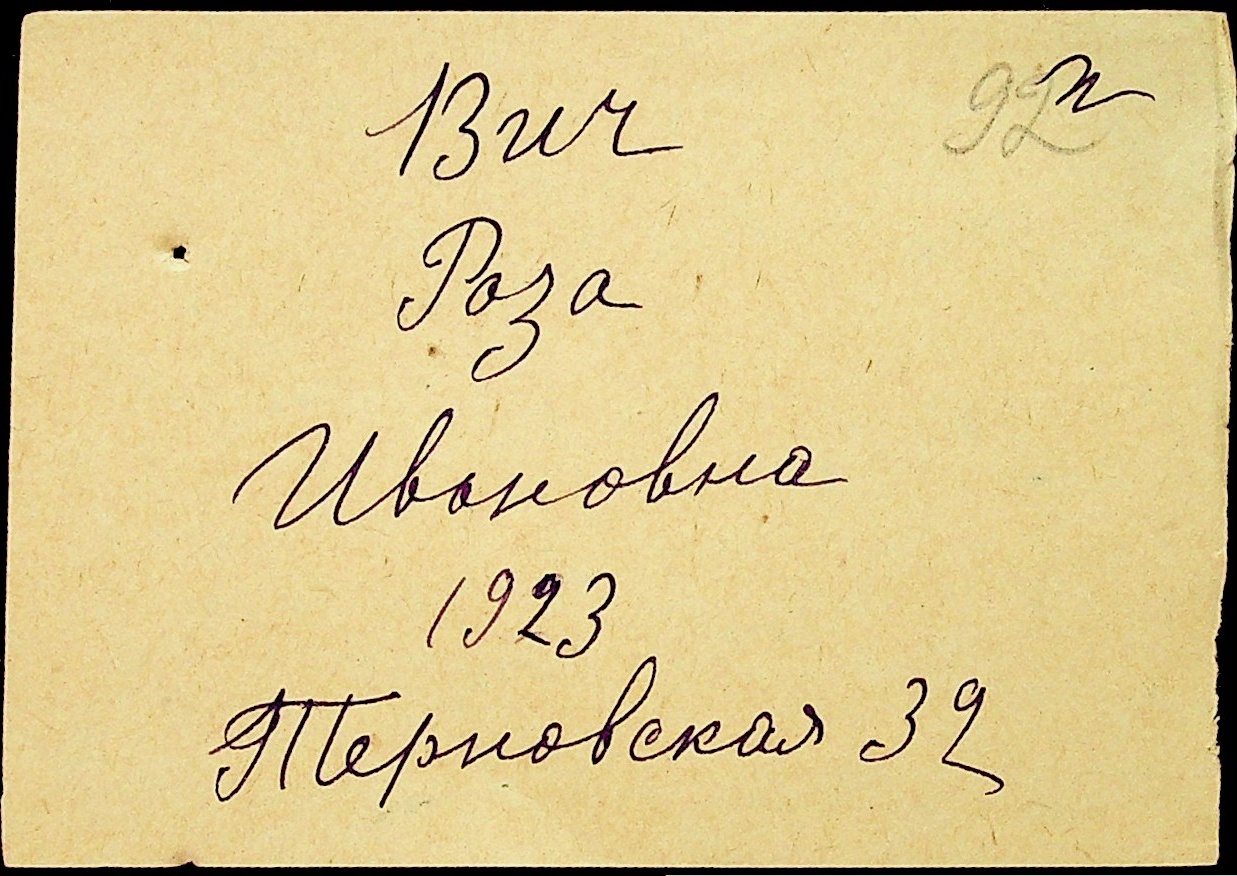 Вич
92
Роза
Ивановна
1923
Терновская 32